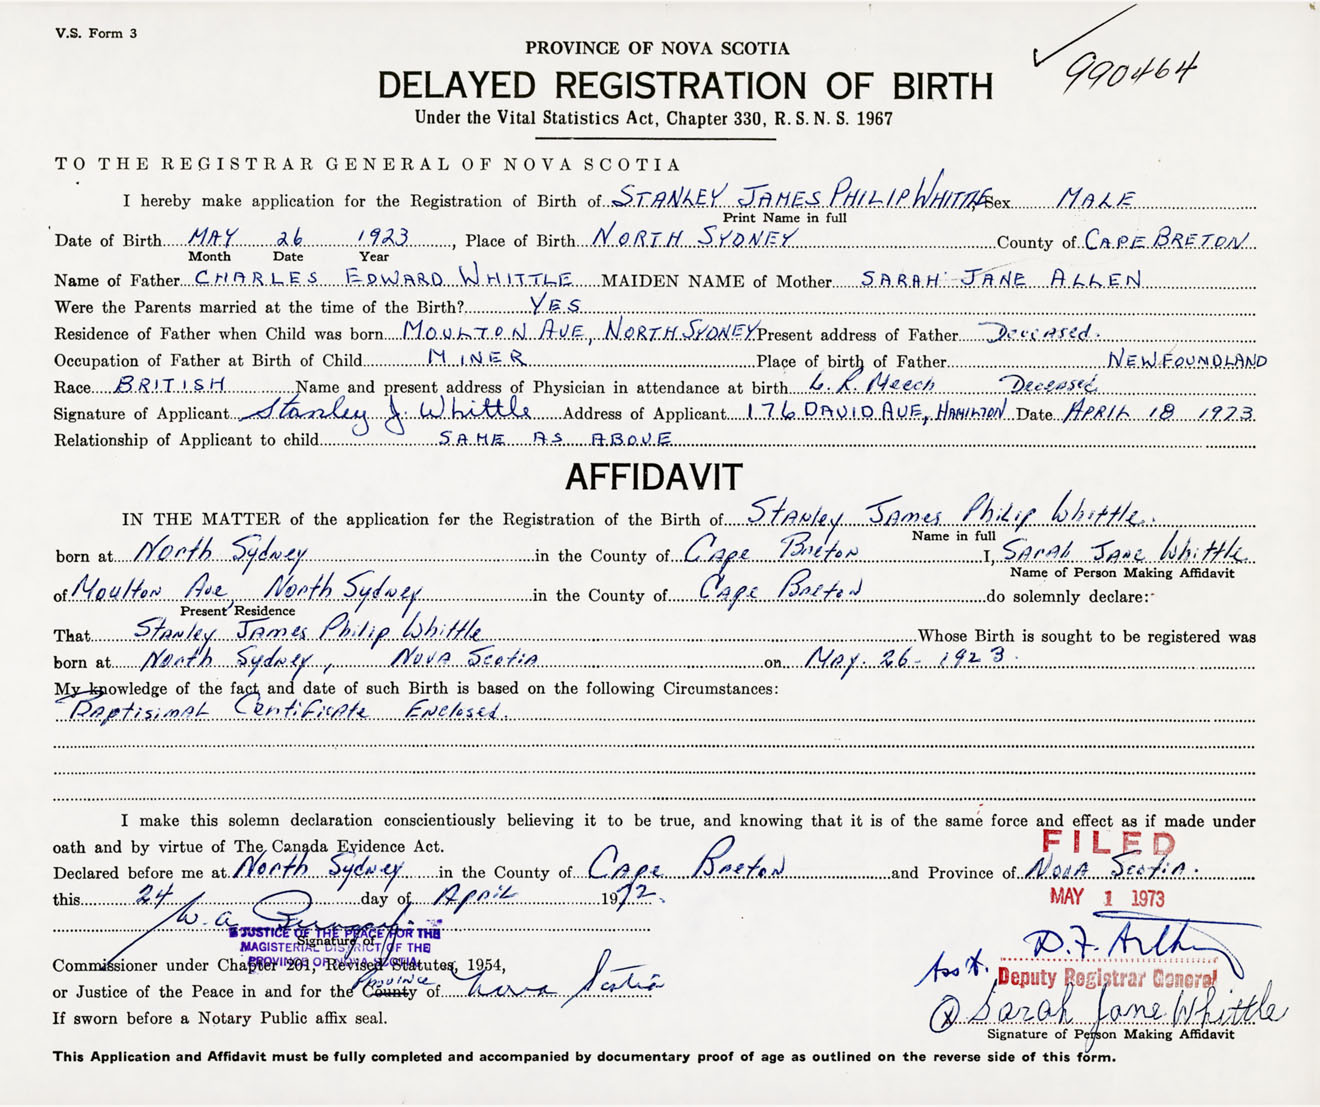 V.S. Form 3
PROVINCE OF NOVA SCOTIA
990464
DELAYED REGISTRATION OF BIRTH
Under the Vital Statistics Act, Chapter 330, R. S. N. S. 1967
TO THE REGISTRAR GENERAL OF NOVA SCOTIA
I hereby make application for the Registration of Birth of STANLEY JAMES PHILIP WHITTLE, Sex MALE
Print Name in full
Date of Birth MAY 26 1923, Place of Birth NORTH SYDNEY County of CAPE BRETON
Month Date Year
Name of Father CHARLES EDWARD WHITTLE MAIDEN NAME of Mother SARAH JANE ALLEN
Were the Parents married at the time of the Birth? YES
Residence of Father when Child was born MOULTON AVE, NORTH SYDNEY Present address of Father Deceased.
Occupation of Father at Birth of Child MINER Place of birth of Father NEWFOUNDLAND
Race BRITISH Name and present address of Physician in attendance at birth R. Meech Deceased
Signature of Applicant Stanley J. Whittle Address of Applicant 176 DAVID AUE, HAMILTON Date APRIL 18 1923
Relationship of Applicant to child SAME AS ABOVE
AFFIDAVIT
IN THE MATTER of the application for the Registration of the Birth of Stanley James Philip Whittle.
Name in full
born at North Sydney in the County of Cape Breton I, Sarah Jane Whittle
Name of Person Making Affidavit
of Moulton Ave, North Sydney in the County of Cape Breton do solemnly declare:
Present Residence
That Stanley James Philip Whittle Whose Birth is sought to be registered was
born at North Sydney, Nova Scotia on May. 26 - 1923.
My knowledge of the fact and date of such Birth is based on the following Circumstances:
Baptisimal Certificate Enclosed.
I make this solemn declaration conscientiously believing it to be true, and knowing that it is of the same force and effect as if made under
oath and by virtue of The Canada Evidence Act.
FILED
Declared before me at North Sydney in the County of Cape Breton and Province of Nova Scotia.
this 24 day of April 1972.
MAY 1 1973
W. A.
JUSTICE OF THE PEACE FOR THE
Signature of
MAGISTERIAL DISTRICT OF THE
PROVINCE OF NOVA SCOTIA
D. F. Arthur
Commissioner under Chapter 201, Revised Statutes, 1954,
Ass't. Deputy Registrar General
or Justice of the Peace in and for the County Province of Nova Scotia
Sarah Jane Whittle
If sworn before a Notary Public affix seal.
Signature of Person Making Affidavit
This Application and Affidavit must be fully completed and accompanied by documentary proof of age as outlined on the reverse side of this form.